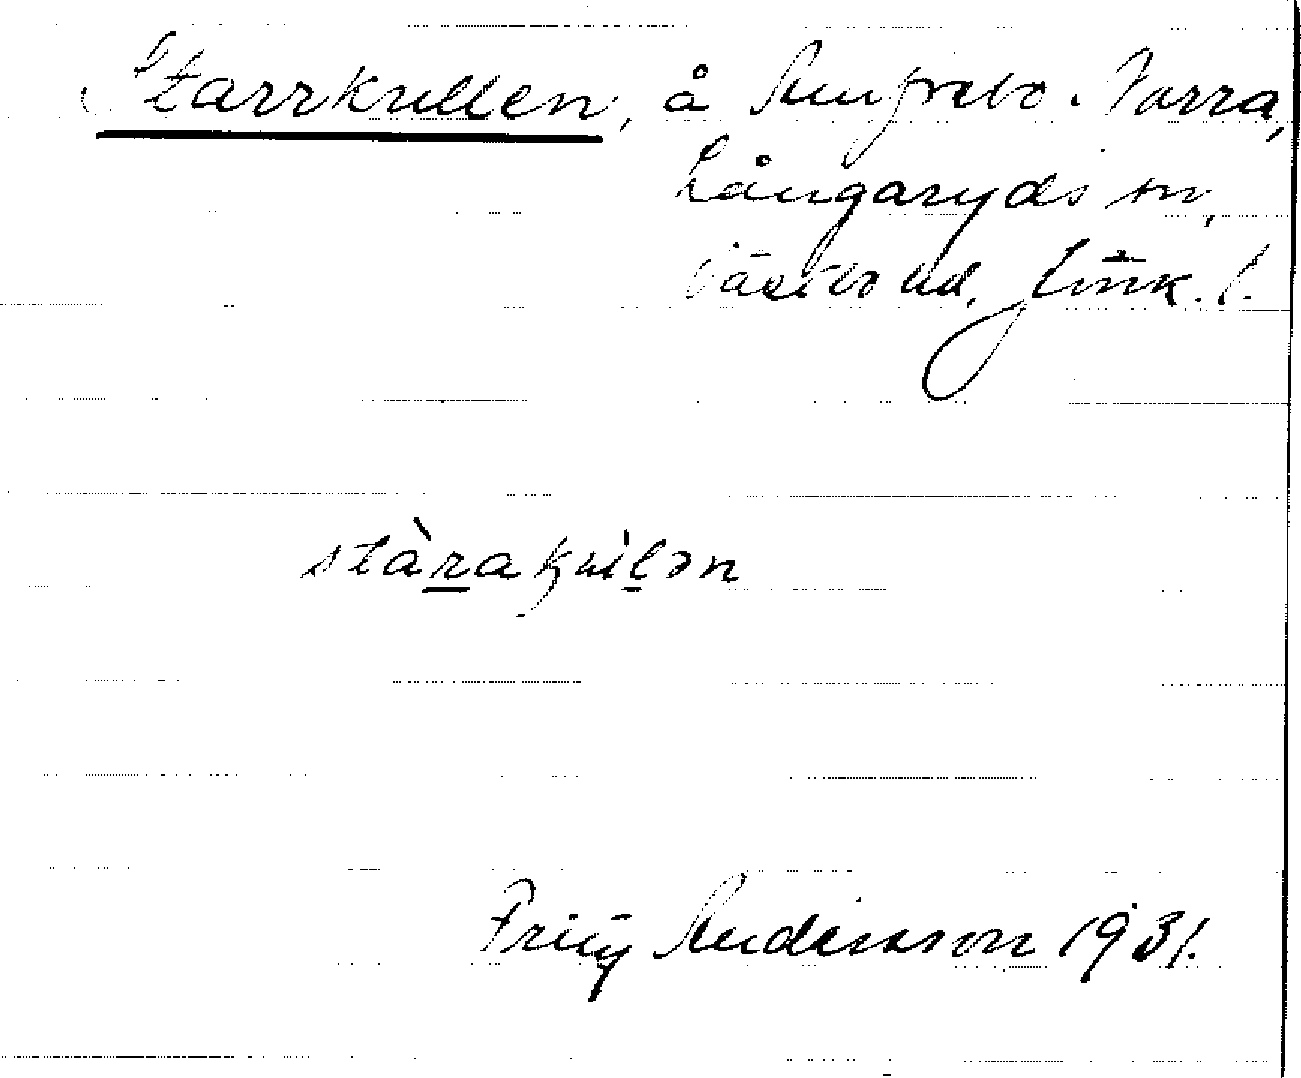 Starrkullen, å Amfrebo Norra,
Långaryds sn,
Västbo hd, Jönk. l.
stàrakùlən
Fritz Andersson 1931.